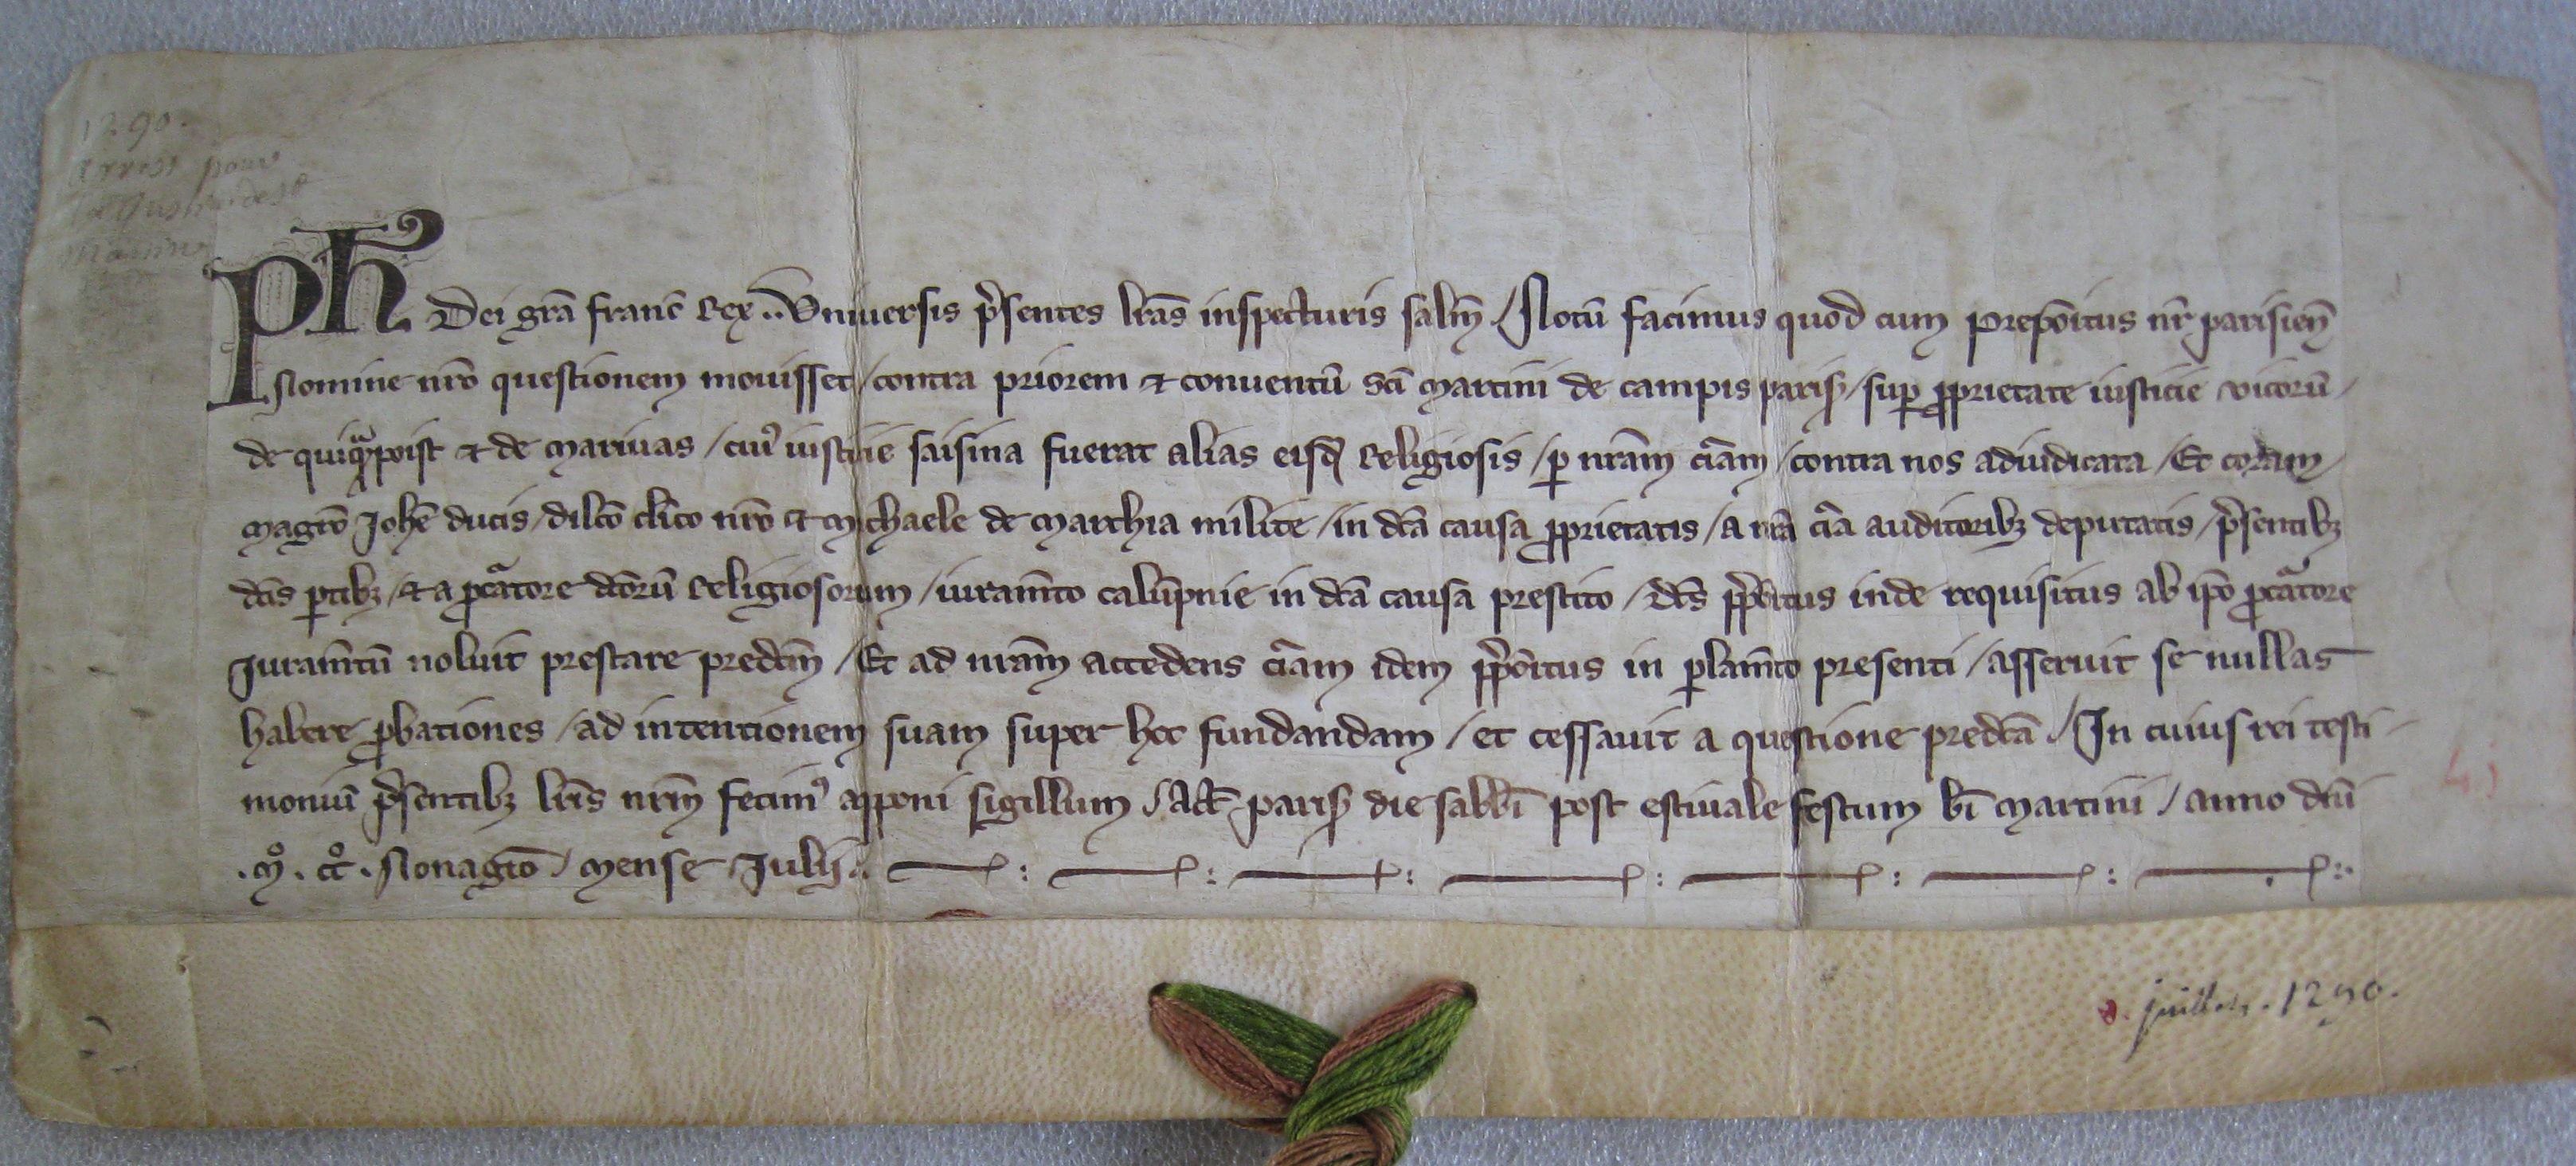 1290.
Arrest pour
la Justice de St
Martin
Ph̄. Dei grā franc̄ Rex .. Vniuersis p̄sentes lrās inspecturis saltm̄ / Notū facimus quod cum Prepōitus nr̄ parisien̄
Nomine nrō questionem mouisset / contra priorem ⁊ conuentū Scī Martini de campis paris̄ / sup̄ ꝓprietate iusticie vicorū /
de quiq̄mpoist ⁊ de mariuas / cui᷒ iusticie saisina fuerat alias eisd̄ Religiosis / ꝑ nrām cīam / contra nos adiudicata / Et coram
magrō Johē ducis / dilcō clīco nrō ⁊ Michaele de Marchia milite / in dcā causa ꝓprietatis / a nrā cīa auditoribꝫ deputatis / p̄sentibꝫ
dcīs ꝑtibꝫ / ⁊ a ꝓcātore dcōrū Religiosorum / iuramn̄to calūpnie in dcā causa prestito / dcs̄ p̄pōitus inde requisitus ab ipō ꝓcātore
Juramn̄tū noluit prestare predcm̄ / Et ad nrām accedens cīam idem p̄pōitus in ꝑlamn̄to presenti / asseruit se nullas
habere ꝓbationes / ad intentionem suam super hoc fundandam / et cessauit a questione predcā / In cuius rei testi-
moniū p̄sentibꝫ lrīs nrm̄ fecim᷒ apponi sigillum / Act̄ paris̄ die sabbī post estiuale festum bī Martini / anno dnī
.Mº. ccº. Nonagrō / Mense Julij.
juillet. 1290.